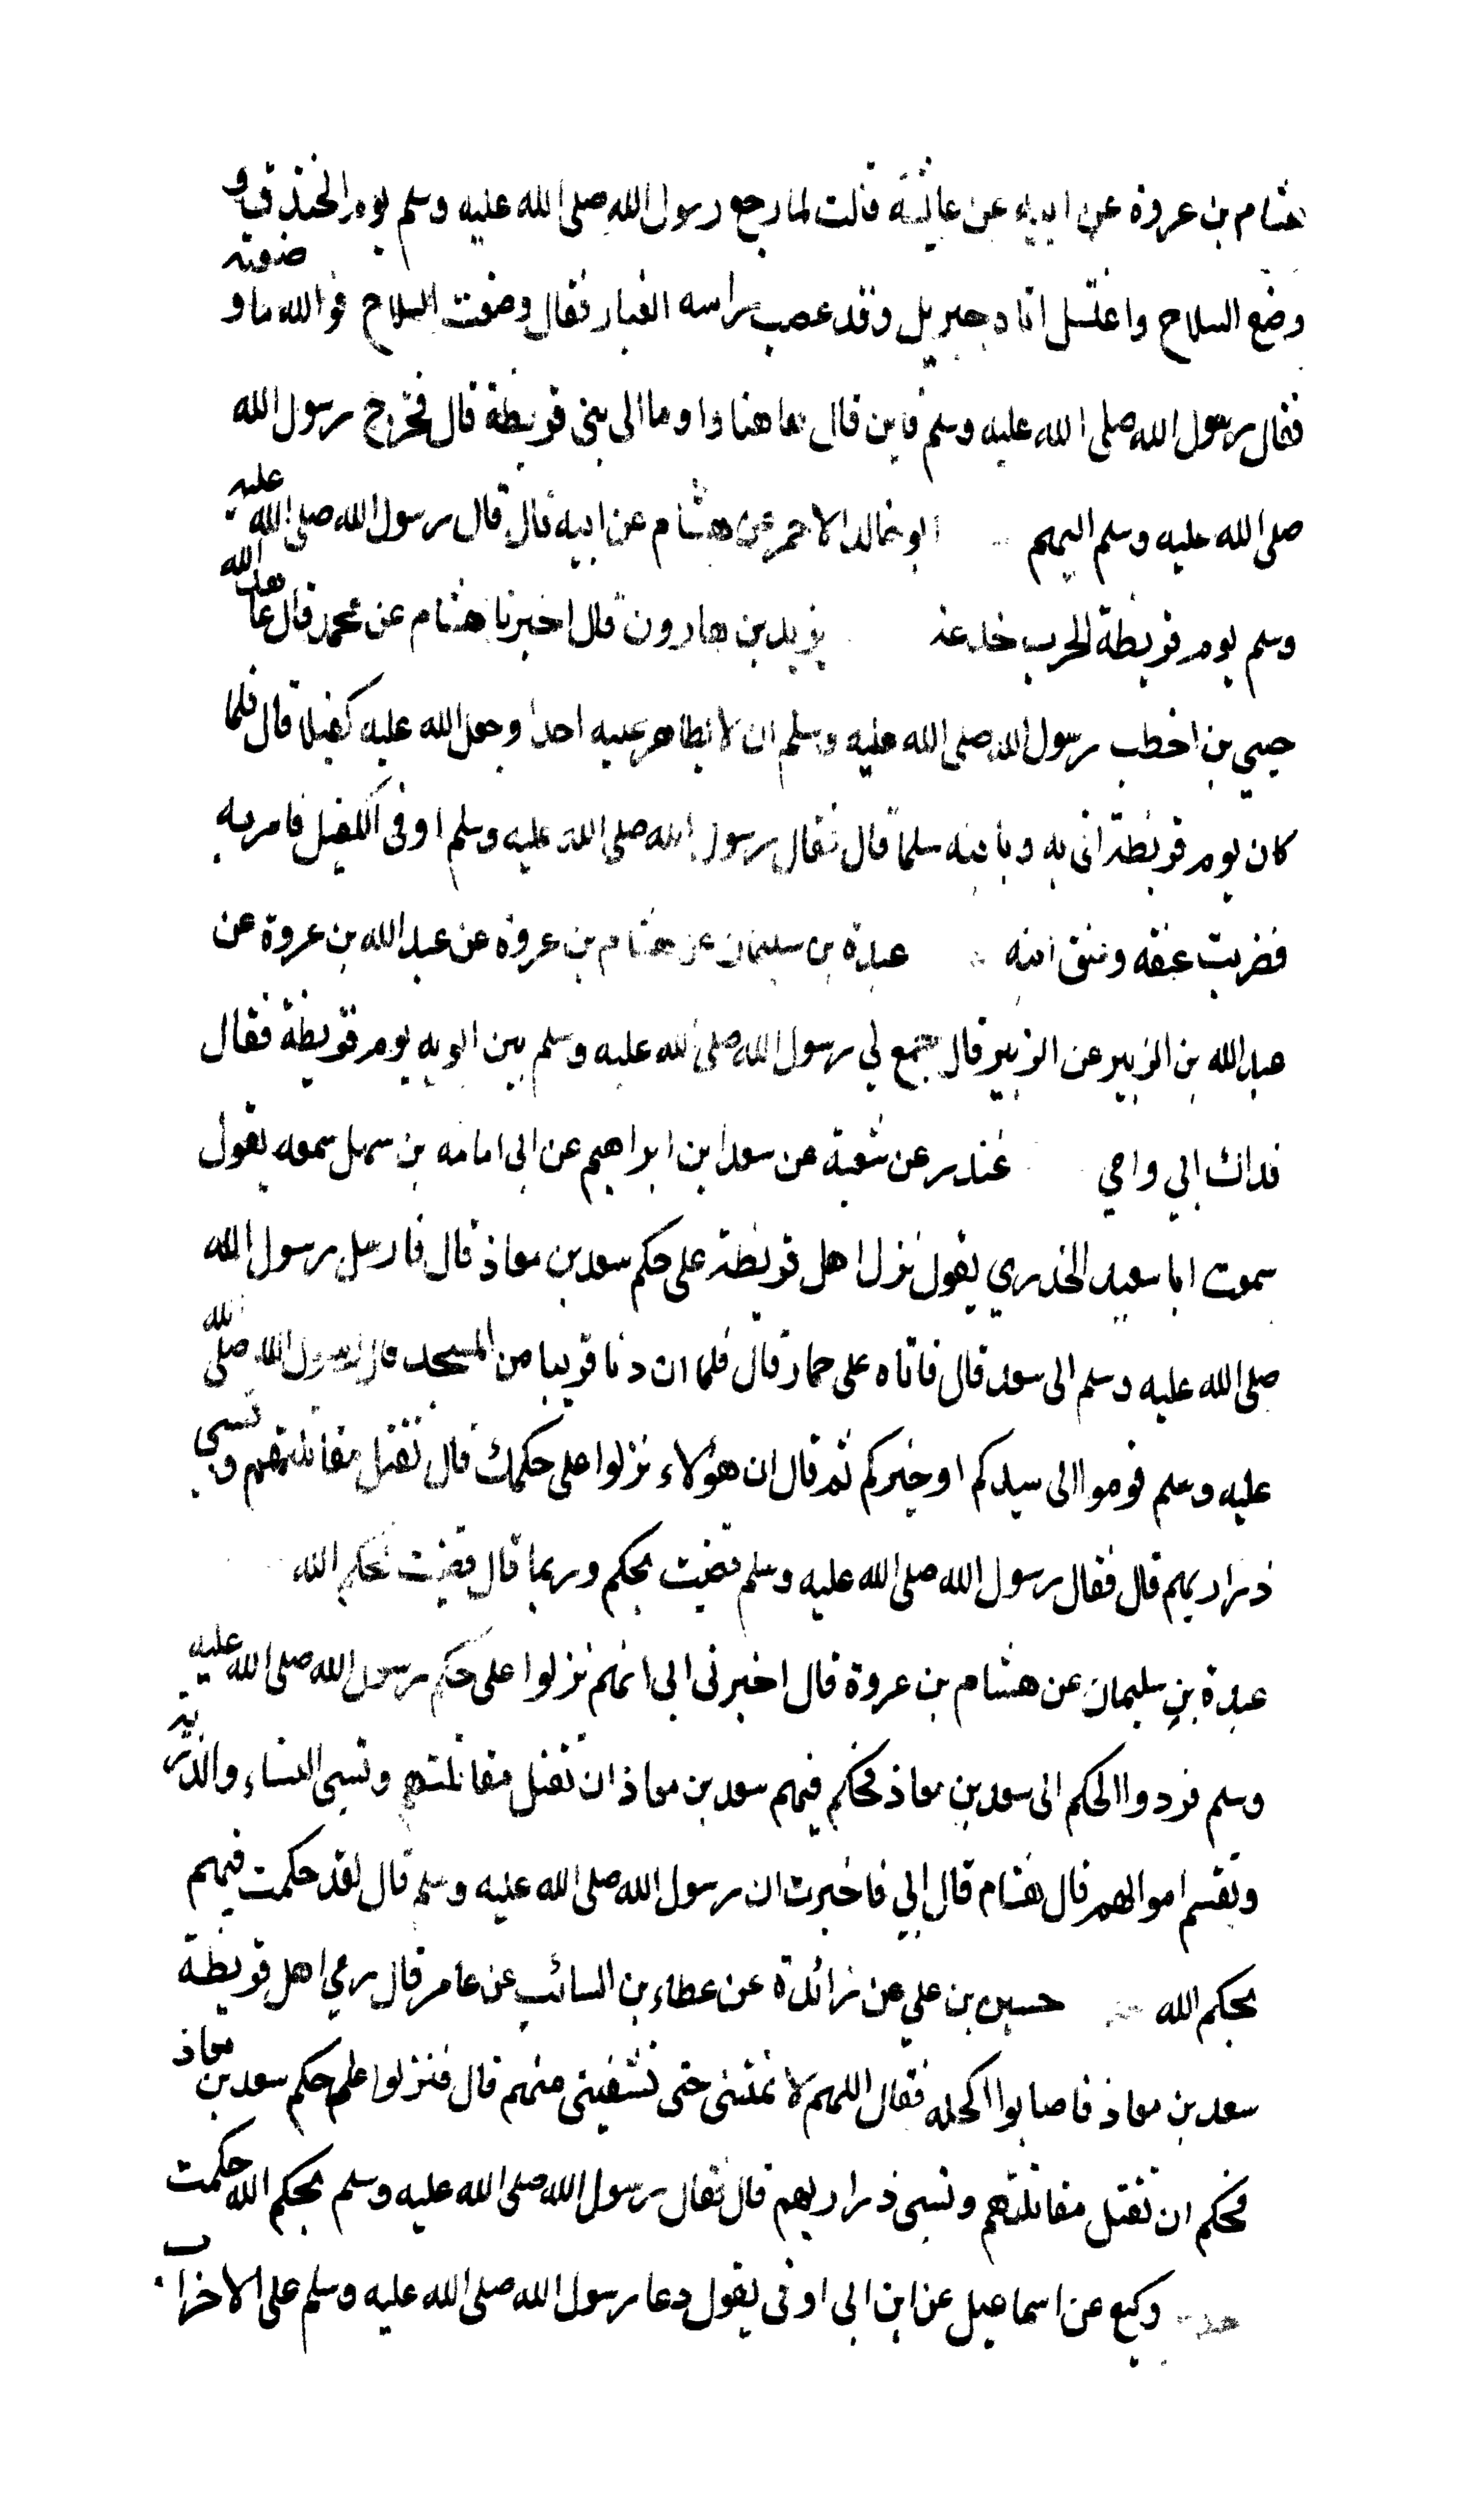 هشام بن عروة عن ابيه عن عائشة قالت لما رجع رسول الله صلى الله عليه وسلم يوم الخندق و
وضع السلاح واغتسل اتاه جبريل وقد عصب براسه الغبار فقال وضعت السلاح فوالله ما وضعته
فقال رسول الله صلى الله عليه وسلم فاين قال هاهنا واوما الى بني قريظة قال فخرج رسول الله
صلى الله عليه وسلم اليهم ابو خالد الاحمر عن هشام عن ابيه قال قال رسول الله صلى الله عليه
وسلم يوم قريظة الحرب خدعة يزيد بن هارون قال اخبرنا هشام عن محمد قال عاهد الله
حيي بن اخطب رسول الله صلى الله عليه وسلم ان لا يظاهر عليه احدا وجعل الله عليه كفيلا قال فلما
كان يوم قريظة اتى به وبابنه سلما قال فقال رسول الله صلى الله عليه وسلم اوفى الكفيل فامر به
فضربت عنقه وعنق ابنه عبدة بن سليمان عن هشام بن عروة عن عبد الله بن عروة عن
عبد الله بن الزبير عن الزبير قال جمع لي رسول الله صلى الله عليه وسلم بين ابويه يوم قريظة فقال
فداك ابي وامي غندر عن شعبة عن سعد ابن ابراهيم عن ابى امامة بن سهل سمعه يقول
سمعت ابا سعيد الخدري يقول نزل اهل قريظة على حكم سعد بن معاذ قال فارسل رسول الله
صلى الله عليه وسلم الى سعد قال فاتاه على حمار قال فلما ان دنا قريبا من المسجد قال رسول الله صلى الله
عليه وسلم قوموا الى سيدكم او خيركم ثم قال ان هؤلاء نزلوا على حكمك قال تقتل مقاتلتهم وتسبى
ذراريهم قال فقال رسول الله صلى الله عليه وسلم قضيت بحكم وربما قال قضيت بحكم الله
عبدة بن سليمان عن هشام بن عروة قال اخبرنى ابى انهم نزلوا على حكم رسول الله صلى الله عليه
وسلم فردوا الحكم الى سعد بن معاذ فحكم فيهم سعد بن معاذ ان تقتل مقاتلتهم وتسبى النساء والذرية
وتقسم اموالهم قال هشام قال ابي فاخبرت ان رسول الله صلى الله عليه وسلم قال لقد حكمت فيهم
بحكم الله حسين بن علي عن زائدة عن عطاء بن السائب عن عامر قال رمي اهل قريظة
سعد بن معاذ فاصابوا اكحله فقال اللهم لا تمتنى حتى تشفينى منهم قال فنزلوا على حكم سعد بن معاذ
فحكم ان تقتل مقاتلتهم وتسبى ذراريهم قال فقال رسول الله صلى الله عليه وسلم بحكم الله حكمت
وكيع عن اسماعيل عن ابن ابى اوفى يقول دعا رسول الله صلى الله عليه وسلم على الاحزاب